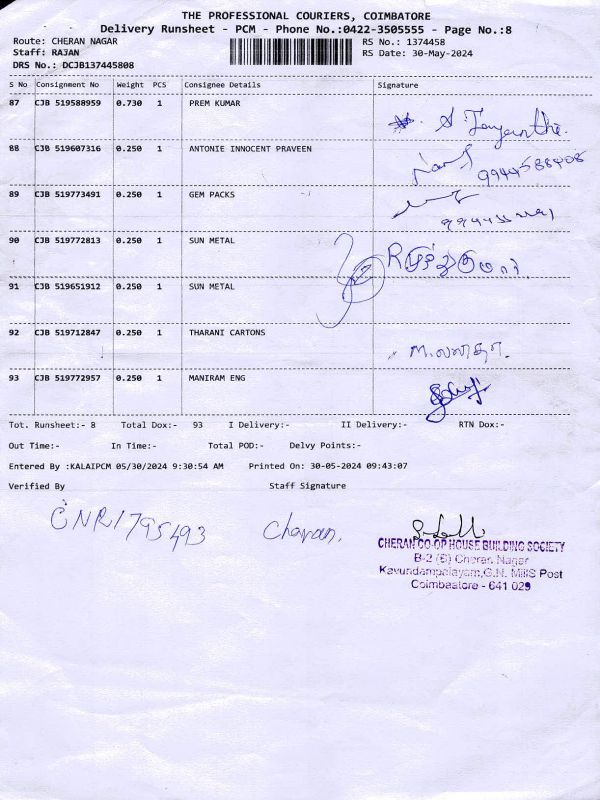 THE PROFESSIONAL COURIERS, COIMBATORE
Delivery Runsheet - PCM - Phone No.:0422-3505555 - Page No.:8
Route: CHERAN NAGAR RS No.: 1374458
Staff: RAJAN RS Date: 30-May-2024
DRS No.: DCJB137445808
S No Consignment No Weight PCS Consignee Details Signature
87 CJB 519588959 0.730 1 PREM KUMAR
88 CJB 519607316 0.250 1 ANTONIE INNOCENT PRAVEEN
9944588408
89 CJB 519773491 0.250 1 GEM PACKS
90 CJB 519772813 0.250 1 SUN METAL
91 CJB 519651912 0.250 1 SUN METAL
92 CJB 519712847 0.250 1 THARANI CARTONS
93 CJB 519772957 0.250 1 MANIRAM ENG
Tot. Runsheet:- 8 Total Dox:- 93 I Delivery:- II Delivery:- RTN Dox:-
Out Time:- In Time:- Total POD:- Delvy Points:-
Entered By :KALAIPCM 05/30/2024 9:30:54 AM Printed On: 30-05-2024 09:43:07
Verified By Staff Signature
CNR1795493 Charan.
CHERAN CO-OP HOUSE BUILDING SOCIETY
B-2 (6) Cheran Nagar
Kavundampalayam,G.N. Mills Post
Coimbatore - 641 029